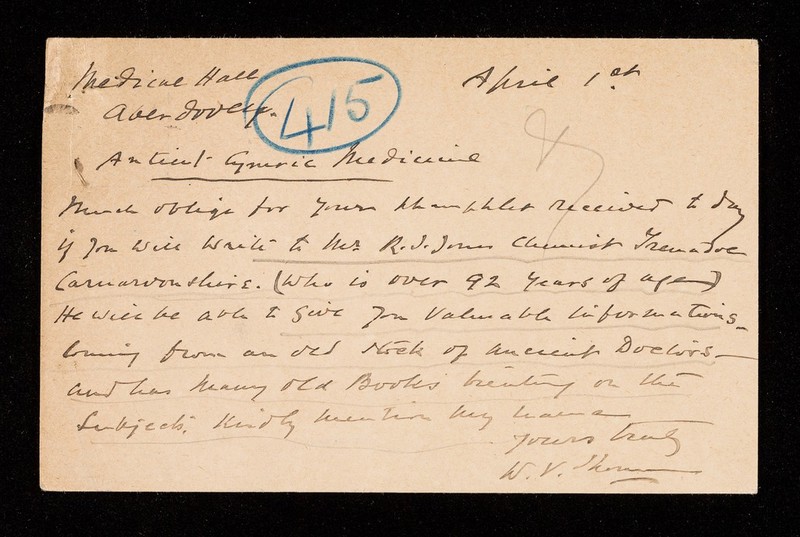 Medical Hall
Aberdovey.
415
April 1st
Antient Cymric Medicine
Much oblige for yours Phamphlet received to day
if you will write to Mr R. I. Jones Chemist Tremadoc
Carnarvonshire. (Who is over 92 years of age)
He will be able to give you Valuable informations
Coming from an old stock of Ancient Doctors
and has Many old Books treating on the
Subjects. Kindly mention my name
yours truly
W. V. Thomas